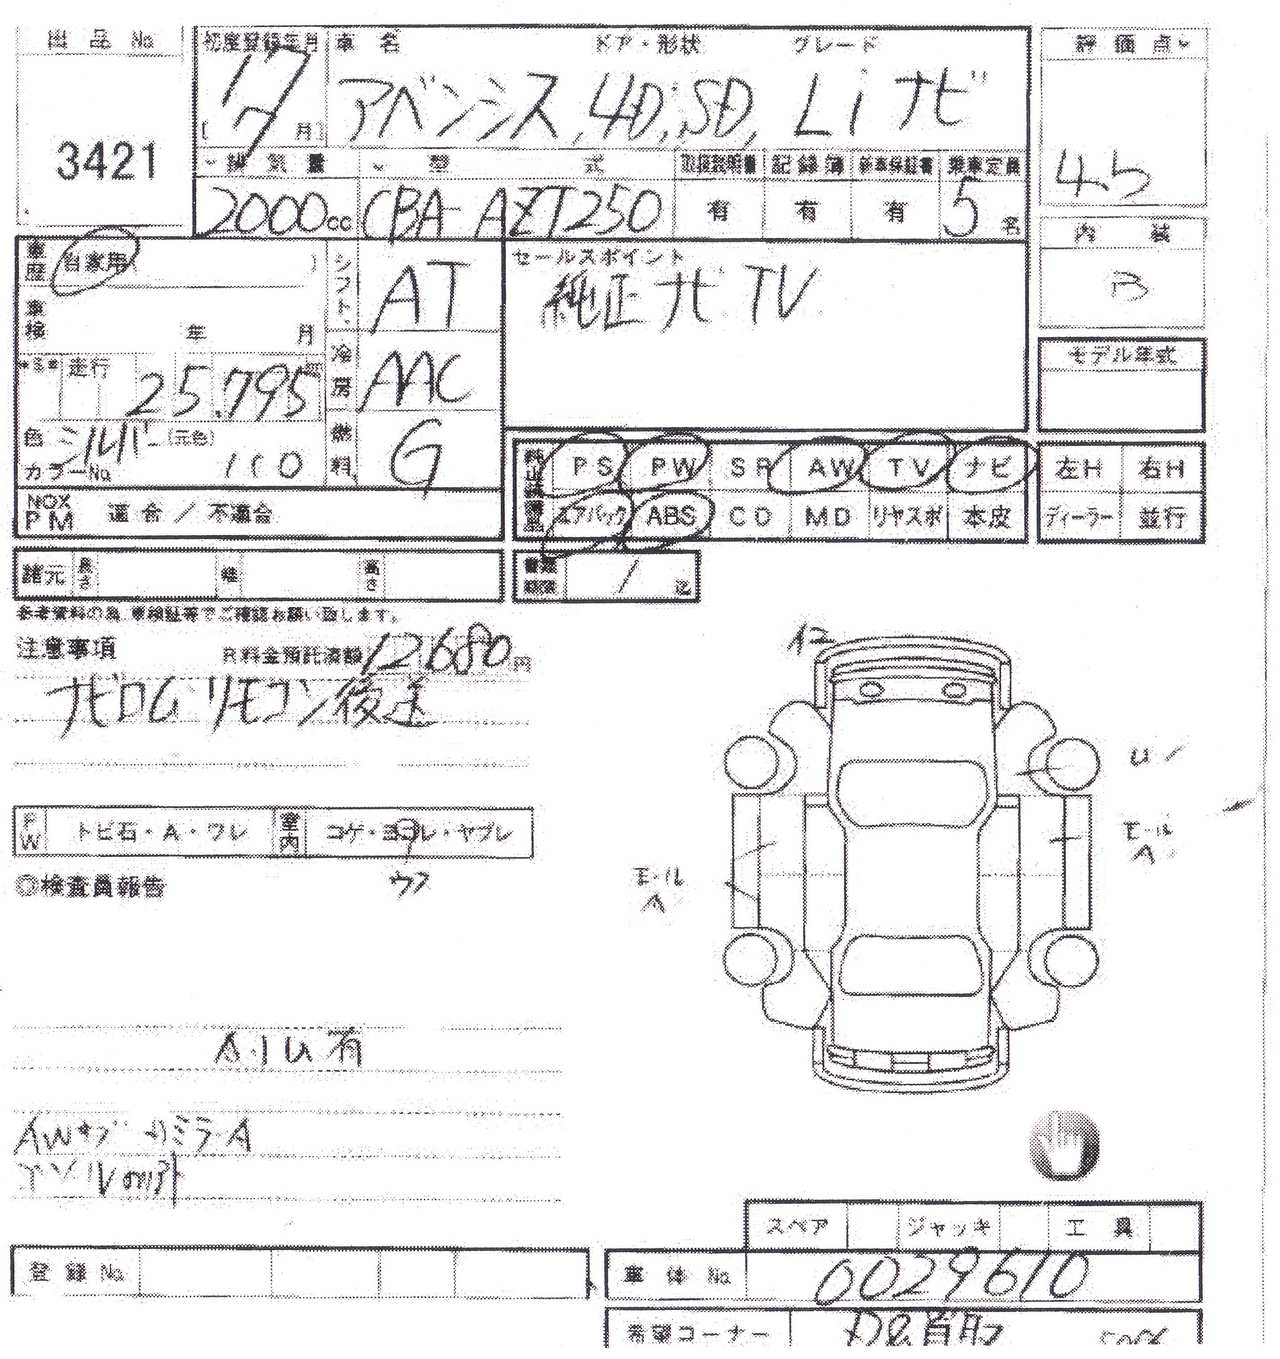 出品No.
3421
初度登録年月 車名 ドア・形状 グレード
17
7月
アベンシス, 4D, SD, Li ナビ
排気量 型式 取扱説明書 記録簿 新車保証書 乗車定員
2000cc CBA-AZT250 有 有 有 5名
評価点
4.5
内装
B
モデル年式
車歴 自家用( )
車検 年 月
走行 25,795
色 シルバー (元色)
カラーNo. 1C0
NOX PM 適合/不適合
シフト AT
冷房 AAC
燃料 G
セールスポイント
純正ナビ TV
純正装備品 PS PW SR AW TV ナビ
エアバック ABS CD MD リヤスポ 本皮
左H 右H
ディーラー 並行
諸元 長さ 幅 高さ
書類期限 / 迄
参考資料の為、車検証等でご確認お願い致します。
注意事項 R料金預託済額 12680円
ナビロム リモコン後送
FW トビ石・A・ワレ 室内 コゲ・ヨゴレ・ヤブレ
ウス
◎検査員報告
A・U有
AWキズ ミラーA
イエ
U
モール
A
モール
A
スペア ジャッキ 工具
登録No.
車体No. 0029610
希望コーナー